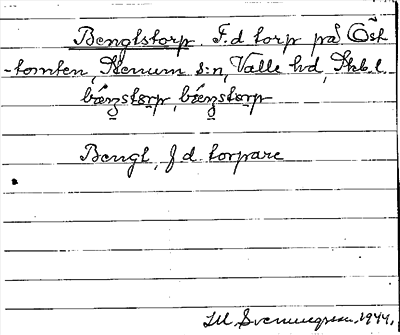 Bengtstorp. F.d torp på Öst
-tomten, Stenum s:n, Valle hd, Skb.l.
bæŋstorp, bæŋstorp
Bengt, f d torpare
1944.